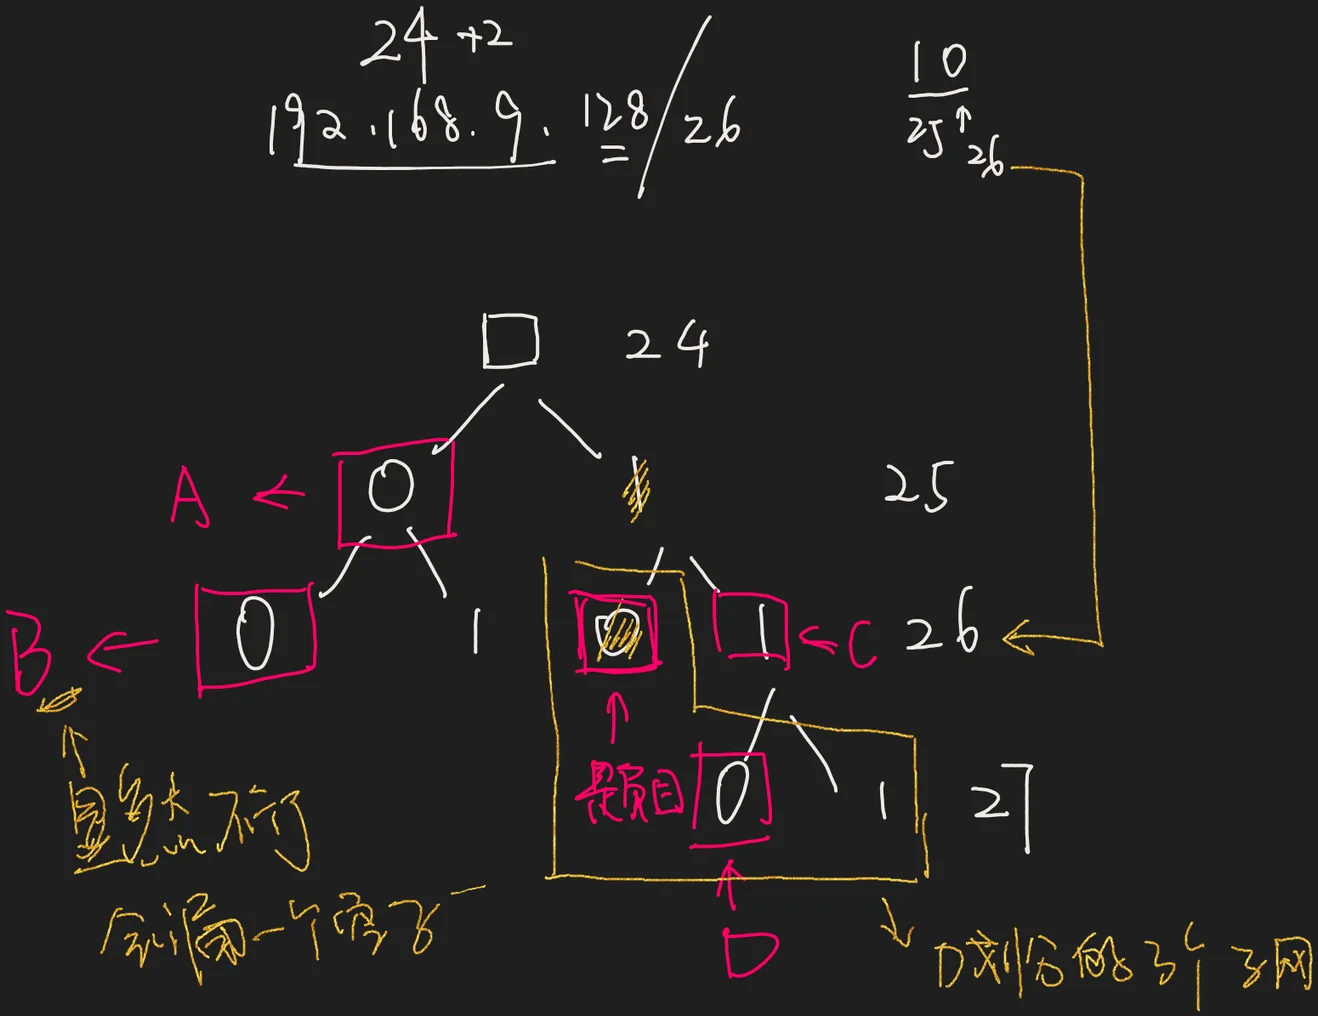 24 +2
192.168.9.128/26
10
25 ↑ 26
□ 24
A ← 0 1 25
B ← 0 1 0 1 ← C 26
↑ ↑
题目 0 1 27
显然不行
↑
会漏一个叶子
D
D划分的3个子网